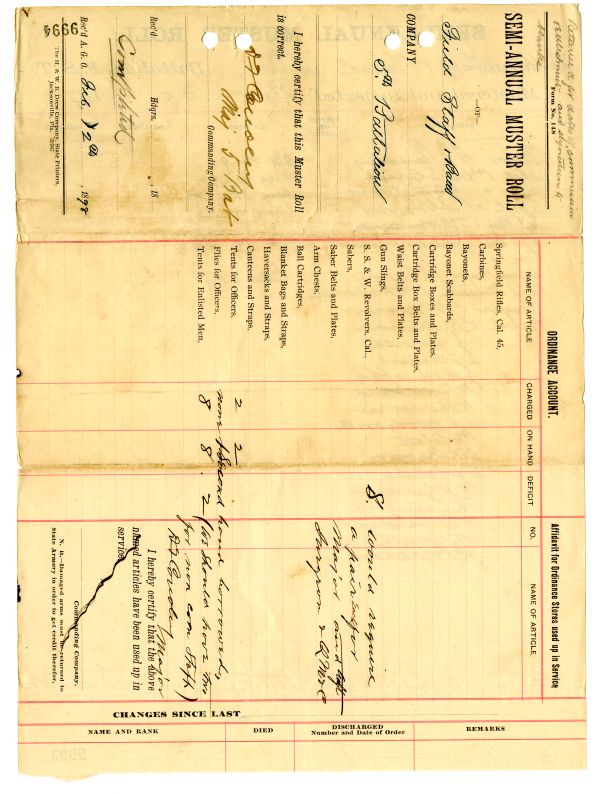 Returned for dates, commission
muster
blanks
Form No. 148
SEMI-ANNUAL MUSTER ROLL
—OF—
Field Staff Band
COMPANY
5th Battalion
I hereby certify that this Muster Roll
is correct.
Maj 5 Bat
Commanding Company.
Rec'd. Hdqrs. , 18
Completed
9994
Rec'd A. G. O. Feb. 12th , 1898
The H. & W. B. Drew Company, State Printers,
Jacksonville, Fla.
ORDINANCE ACCOUNT.
NAME OF ARTICLE CHARGED ON HAND DEFICIT
Springfield Rifles, Cal. 45,
Carbines,
Bayonets,
Bayonet Scabbards,
Cartridge Boxes and Plates,
Cartridge Box Belts and Plates,
Waist Belts and Plates,
Gun Slings,
S. S. & W. Revolvers, Cal.,
Sabers,
Saber Belts and Plates,
Arm Chests,
Ball Cartridges,
Blanket Bags and Straps,
Haversacks and Straps,
Canteens and Straps,
Tents for Officers, 2 2
Flies for Officers, none second hand borrowed,
Tents for Enlisted Men, 8 8 2 (We should have
for non com Staff)
Affidavit for Ordinance Stores used up in Service
NO. NAME OF ARTICLE
8 would require
a pair each for
Major and
Surgeon &
I hereby certify that the above
named articles have been used up in
service.
Major
Commanding Company.
N. B.—Damaged arms must be returned to
State Armory in order to get credit therefor.
CHANGES SINCE LAST
NAME AND RANK
DIED
DISCHARGED
Number and Date of Order
REMARKS